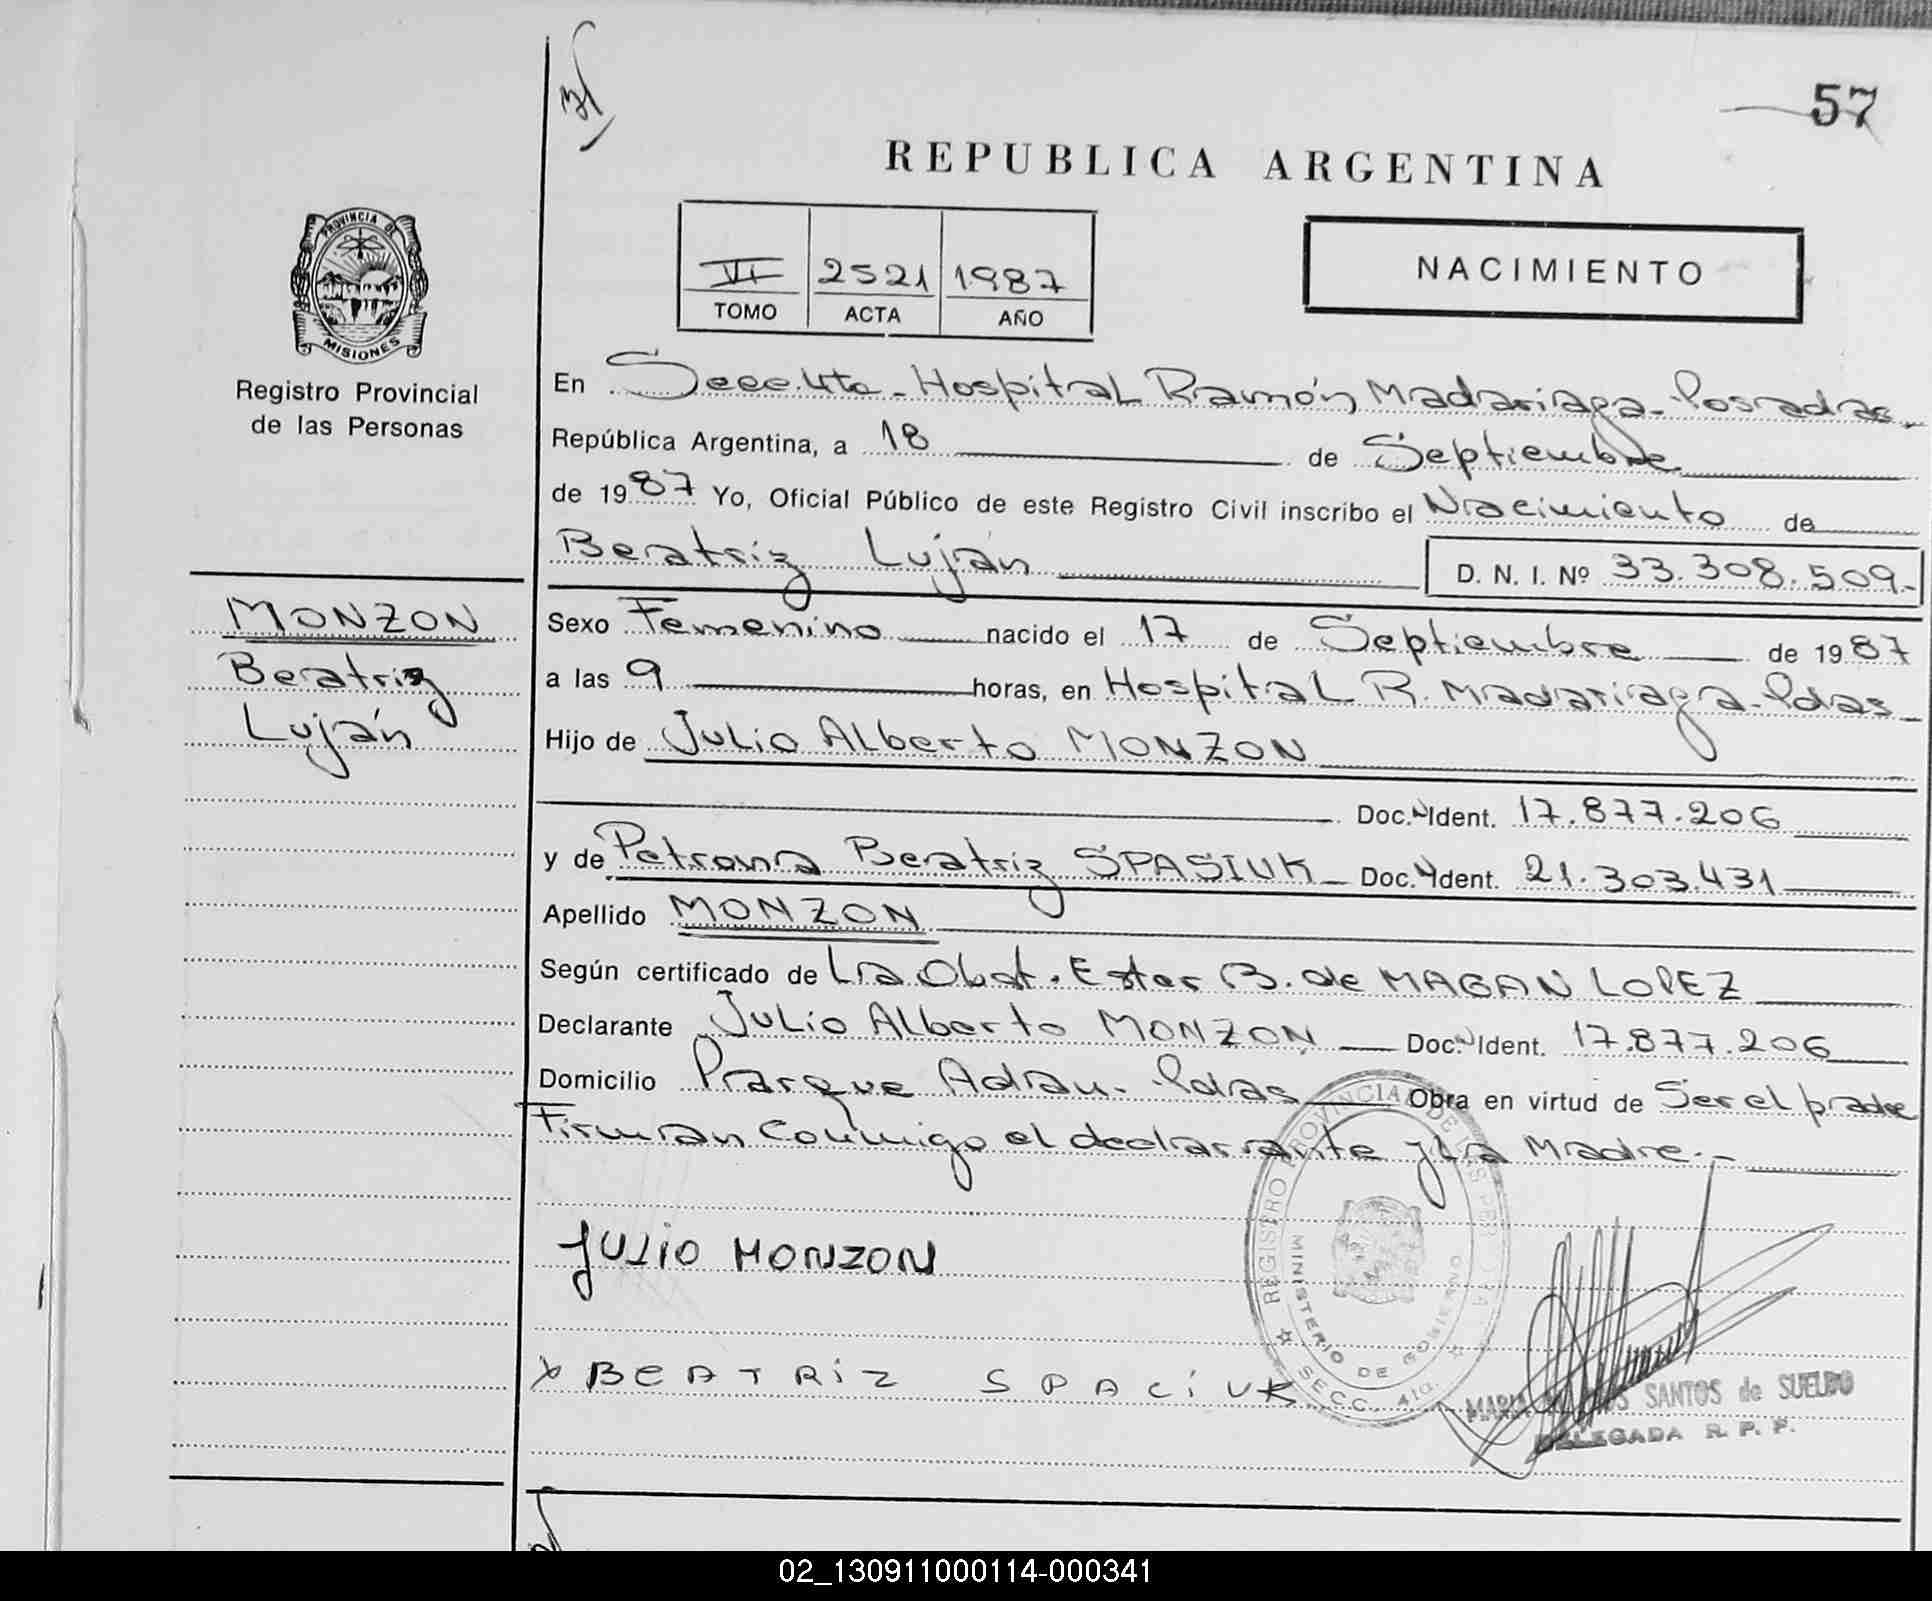 57
REPUBLICA ARGENTINA
PROVINCIA DE
MISIONES
Registro Provincial
de las Personas
VI 2521 1987
TOMO ACTA AÑO
NACIMIENTO
En Secc. 4ta - Hospital Ramón Madariaga - Posadas
República Argentina, a 18 de Septiembre
de 1987 Yo, Oficial Público de este Registro Civil inscribo el Nacimiento de
Beatriz Luján D. N. I. Nº 33.308.509.-
MONZON
Beatriz
Luján
Sexo Femenino nacido el 17 de Septiembre de 1987
a las 9 horas, en Hospital R. Madariaga - Pdas -
Hijo de Julio Alberto MONZON
Doc. Ident. 17.877.206
y de Petrona Beatriz SPASIUK - Doc. Ident. 21.303.431
Apellido MONZON
Según certificado de La Obst. Ester B. de MAGAN LOPEZ
Declarante Julio Alberto MONZON Doc. Ident. 17.877.206
Domicilio Parque Adan - Pdas Obra en virtud de Ser el padre
Firman conmigo el declarante y La Madre.-
JULIO MONZON
X BEATRIZ SPACIUK
REGISTRO PROVINCIAL DE LAS PERSONAS
MINISTERIO DE GOBIERNO
SECC. 4ta
MARIA SANTOS de SUELDO
DELEGADA R. P. P.
02_130911000114-000341